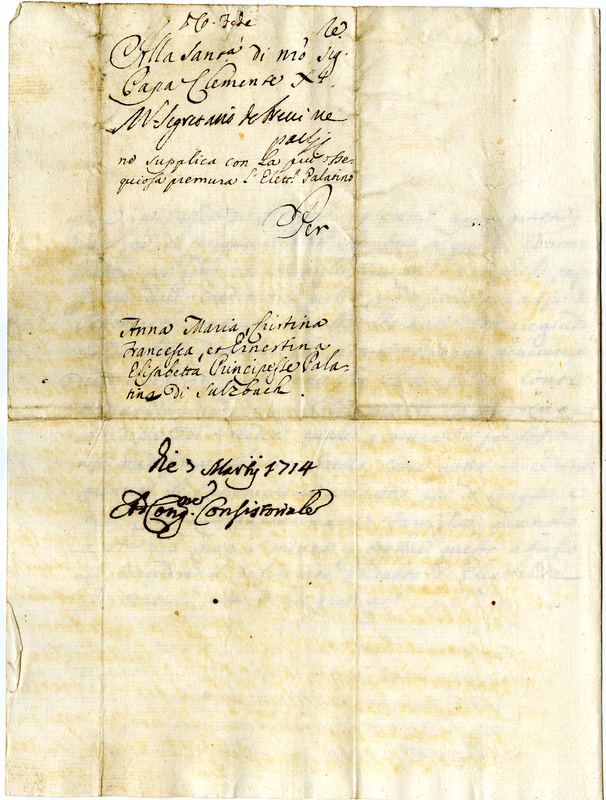 Alla Santà di nrõ Sig.re
Papa Clemente XI.
Mr Segretario de Brevi ne
parli
no supplica con la più osse-
quiosa premura l'Elett.e Palatino
Per
Anna Maria Cristina
Francesca, et Ernestina
Elisabetta Principesse Pala-
tine di Sulzbach.
Die 3 Martij 1714
Ad Cong.nem Consistorialem